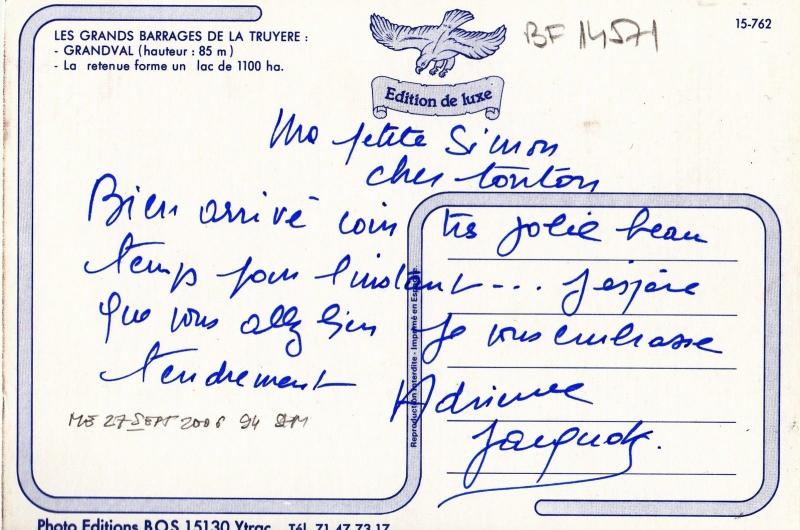 LES GRANDS BARRAGES DE LA TRUYERE :
- GRANDVAL (hauteur : 85 m)
- La retenue forme un lac de 1100 ha.
Edition de luxe
BF 14571
15-762
Ma petite Simon
cher tonton
Bien arrivé coin très jolie beau
temps pour l'instant --... J'espère
que vous allez bien je vous embrasse
tendrement Adrienne
Jacquot.
ME 27 SEPT 2006 94
Reproduction interdite - Imprimé en Espagne
Photo Editions BOS 15130 Ytrac Tél. 71.47.73.17